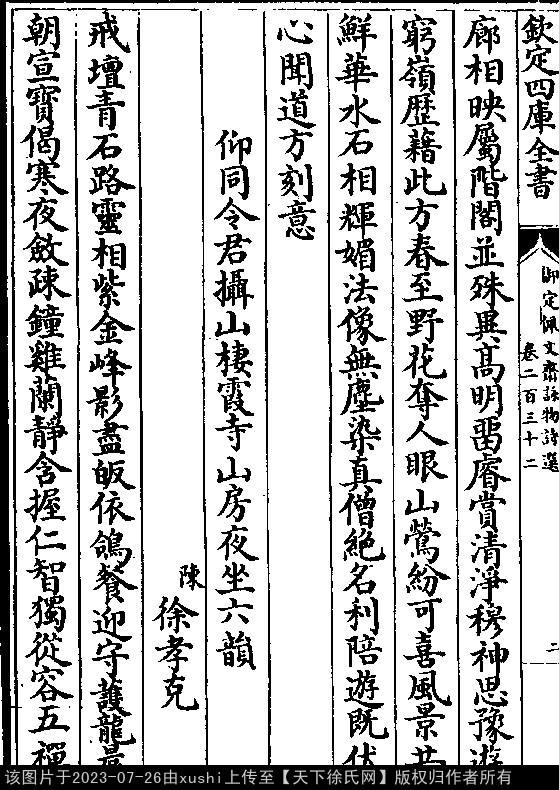 欽定四庫全書
御定佩文齋詠物詩選
卷二百三十二
二
廊相映屬階閣並殊異高明留睿賞清淨穆神思豫遊
窮嶺歷藉此方春至野花奪人眼山鶯紛可喜風景共
鮮華水石相輝媚法像無塵染真僧絕名利陪遊既伏
心聞道方刻意
仰同令君攝山棲霞寺山房夜坐六韻
陳
徐孝克
戒壇青石路靈相紫金峰影盡皈依鴿餐迎守護龍晨
朝宣寶偈寒夜斂疎鐘雞蘭靜含握仁智獨從容五禪
该图片于2023-07-26由xushi上传至【天下徐氏网】版权归作者所有